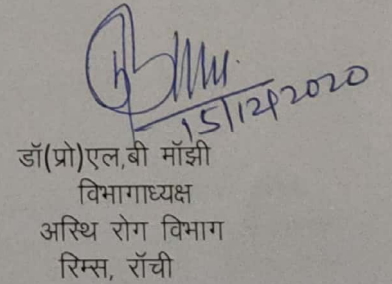 15/12/2020
डॉ(प्रो)एल,बी मॉझी
विभागाध्यक्ष
अस्थि रोग विभाग
रिम्स, रॉची